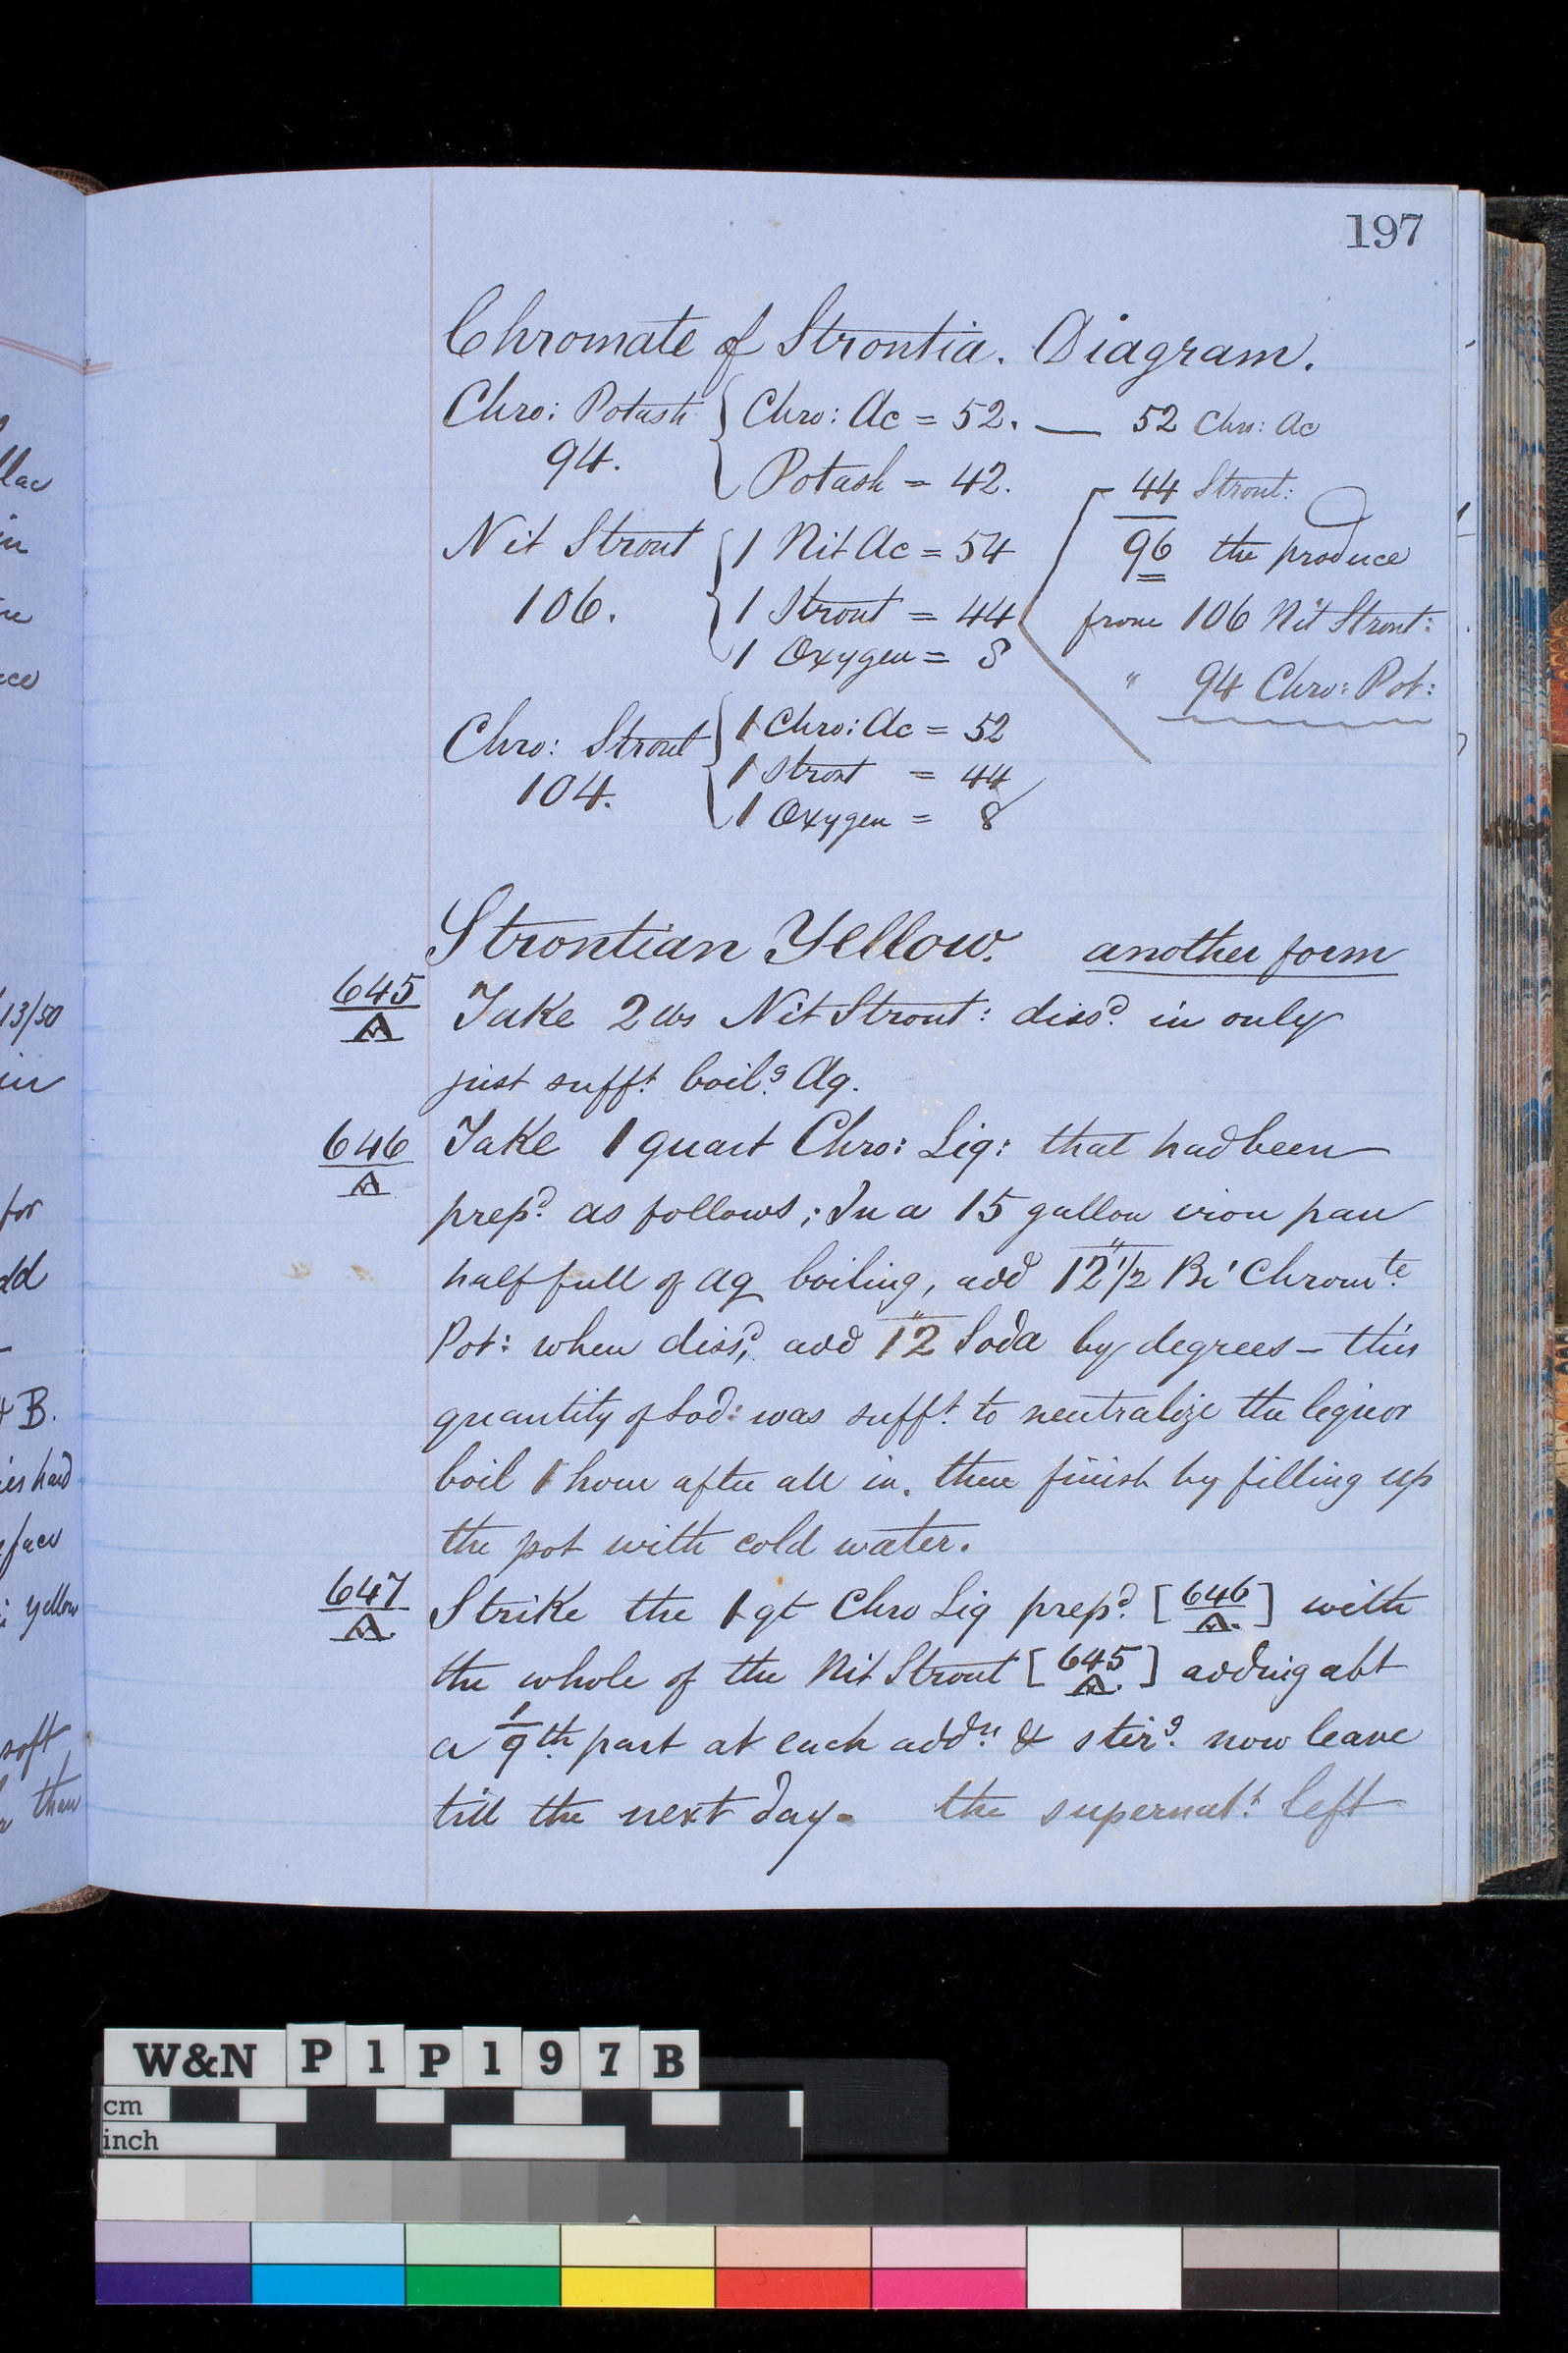 197
Chromate of Strontia. Diagram.
Chro: Potash { Chro: Ac = 52. — 52 Chro: Ac
94. Potash = 42. 44 Stront:
Nit Stront { 1 Nit Ac = 54 96 the produce
106. 1 Stront = 44 from 106 Nit Stront:
1 Oxygen = 8 " 94 Chro: Pot:
Chro: Stront { 1 Chro: Ac = 52
104. 1 Stront = 44
1 Oxygen = 8
Strontian Yellow. another form
645/A Take 2 lbs Nit Stront: dissd. in only
just sufft. boilg. Aq.
646/A Take 1 quart Chro: Liq: that had been
prepd. as follows; In a 15 gallon iron pan
half full of aq boiling, add 12 1/2 Bi' Chromte.
Pot: when dissd, add 12 Soda by degrees – this
quantity of Sod: was sufft. to neutralize the liquor
boil 1 hour after all in. then finish by filling up
the pot with cold water.
647/A. Strike the 1 qt Chro Liq prepd. [646/A.] with
the whole of the Nit Stront [645/A.] adding abt
a 1/9th. part at each addn. & stirg. now leave
till the next day. the supernatt. left
llac
in
13/50
in
for
dd
& B.
hard
yellow
soft
than
W&N P1P197B
cm
inch